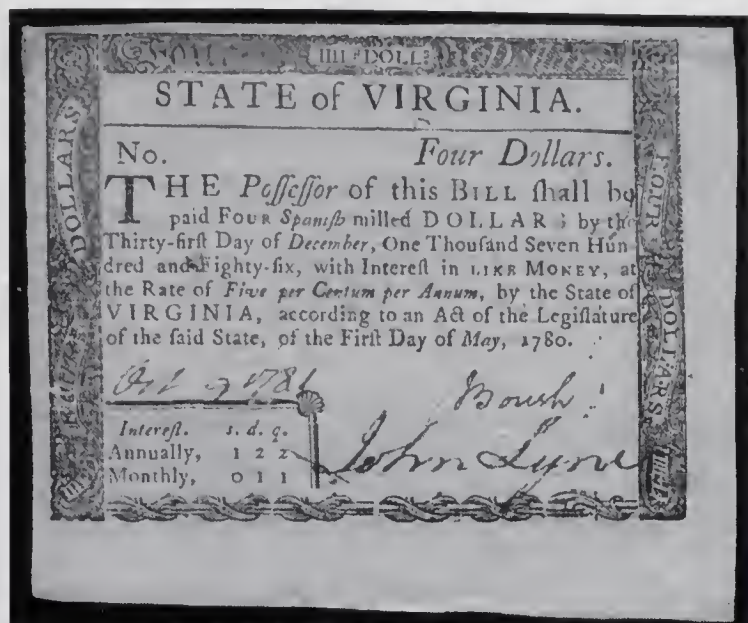 IIII DOLLS
STATE of VIRGINIA.
No. Four Dollars.
THE Poſſeſſor of this BILL ſhall be
paid FOUR Spaniſh milled DOLLARS by the
Thirty-firſt Day of December, One Thouſand Seven Hun
dred and Eighty-ſix, with Intereſt in LIKE MONEY, at
the Rate of Five per Centum per Annum, by the State of
VIRGINIA, according to an Act of the Legiſlature
of the ſaid State, of the Firſt Day of May, 1780.
Boush
Intereſt. s. d. q.
Annually, 1 2 2
Monthly, 0 1 1
John Lyne
DOLLARS
FOUR
DOLLARS